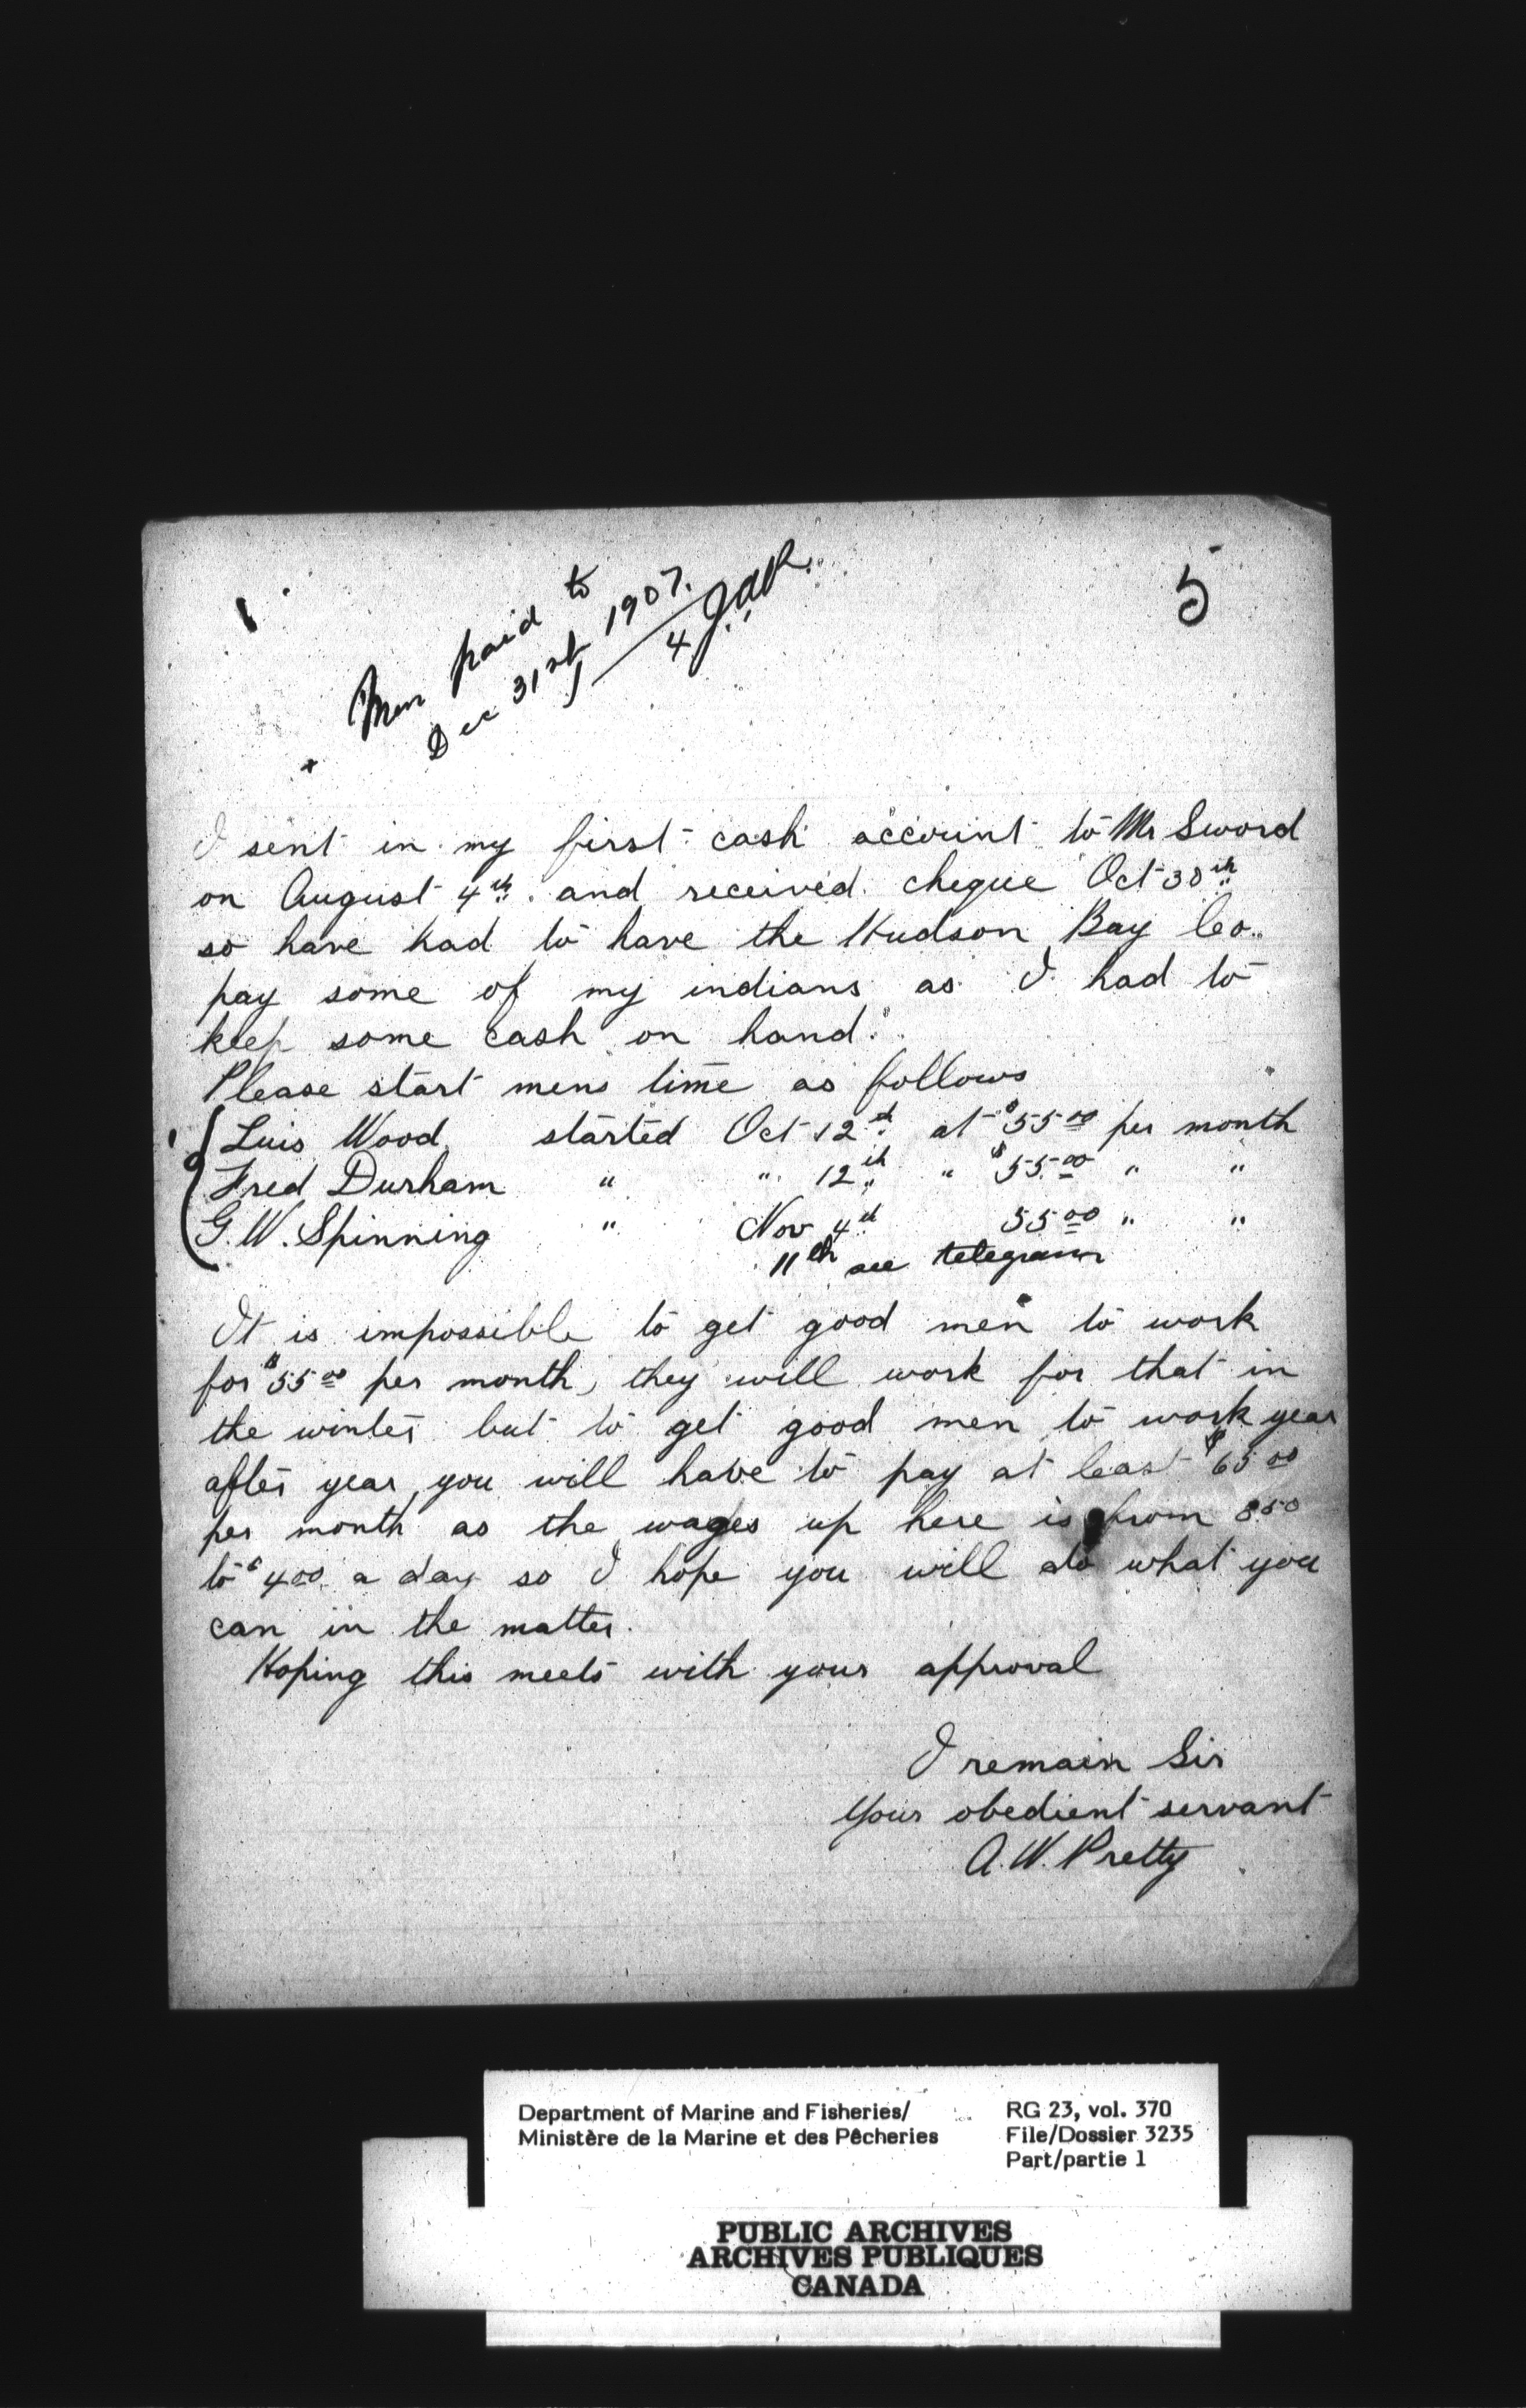 5
Men paid to
Dec 31st 1907.
4
I sent in my first cash account to Mr Sword
on August 4th. and received cheque Oct 30th
so have had to have the Hudson Bay Co..
pay some of my indians as I had to
keep some cash on hand.
Please start mens time as follows
Luis Wood started Oct 12th at $55.00 per month
Fred Durham " " 12th " $55.00 " "
G.W. Spinning " Nov 4th 55.00 " "
11th see telegram
It is impossible to get good men to work
for $55.00 per month, they will work for that in
the winter but to get good men to work year
after year, you will have to pay at least $65.00
per month as the wages up here is from 3.50
to $4.00 a day so I hope you will do what you
can in the matter.
Hoping this meets with your approval
I remain Sir
Your obedient servant
A.W. Pretty
Department of Marine and Fisheries/
Ministère de la Marine et des Pêcheries
RG 23, vol. 370
File/Dossier 3235
Part/partie 1
PUBLIC ARCHIVES
ARCHIVES PUBLIQUES
CANADA